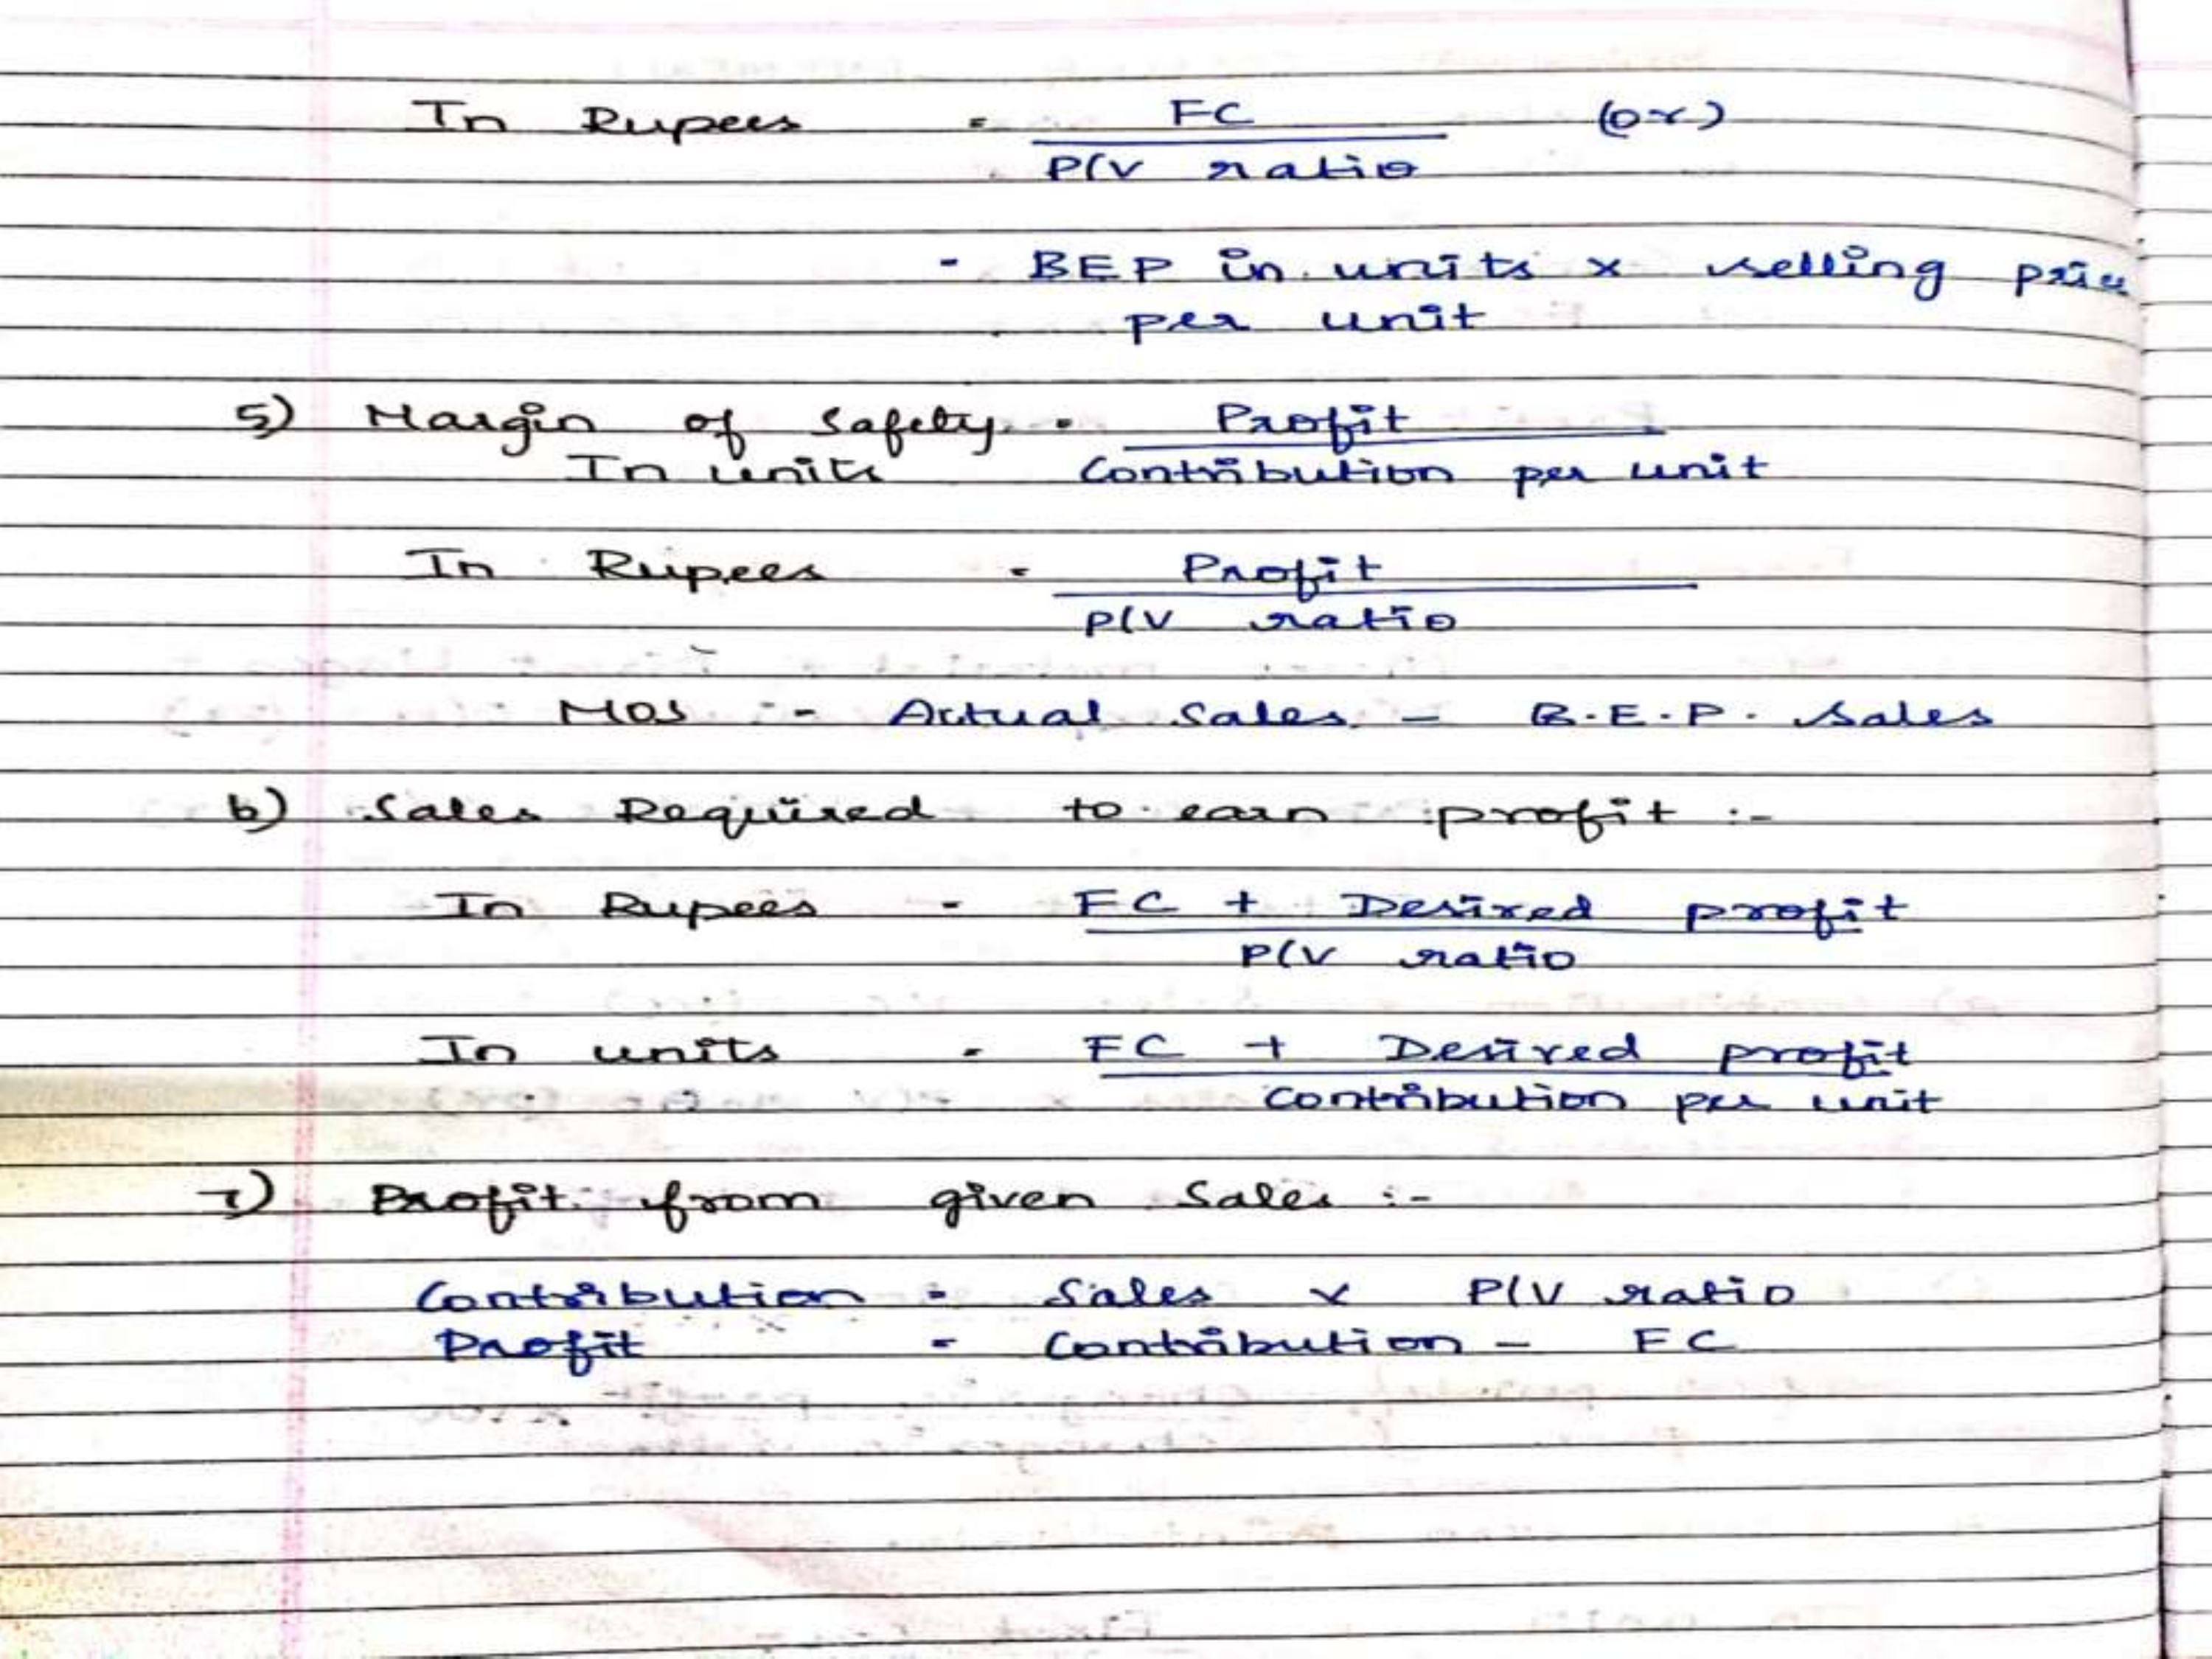 In Rupees = FC (or)
P/V ratio
= BEP in units x selling price
per unit
5) Margin of Safety = Profit
In units Contribution per unit
In Rupees = Profit
P/V ratio
MOS :- Actual Sales - B.E.P. Sales
6) Sales Required to earn profit :-
In Rupees = FC + Desired profit
P/V ratio
In units = FC + Desired profit
Contribution per unit
7) Profit from given Sales :-
Contribution = Sales x P/V ratio
Profit = Contribution - FC